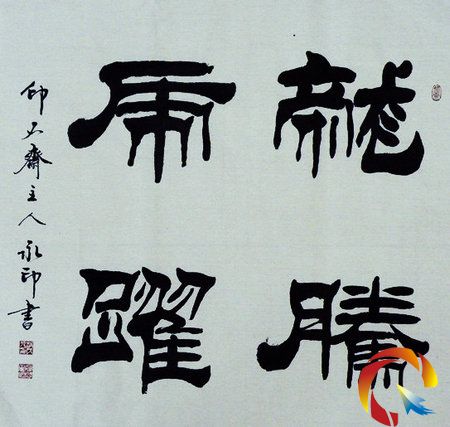 龍騰
虎躍
印石齋主人印書